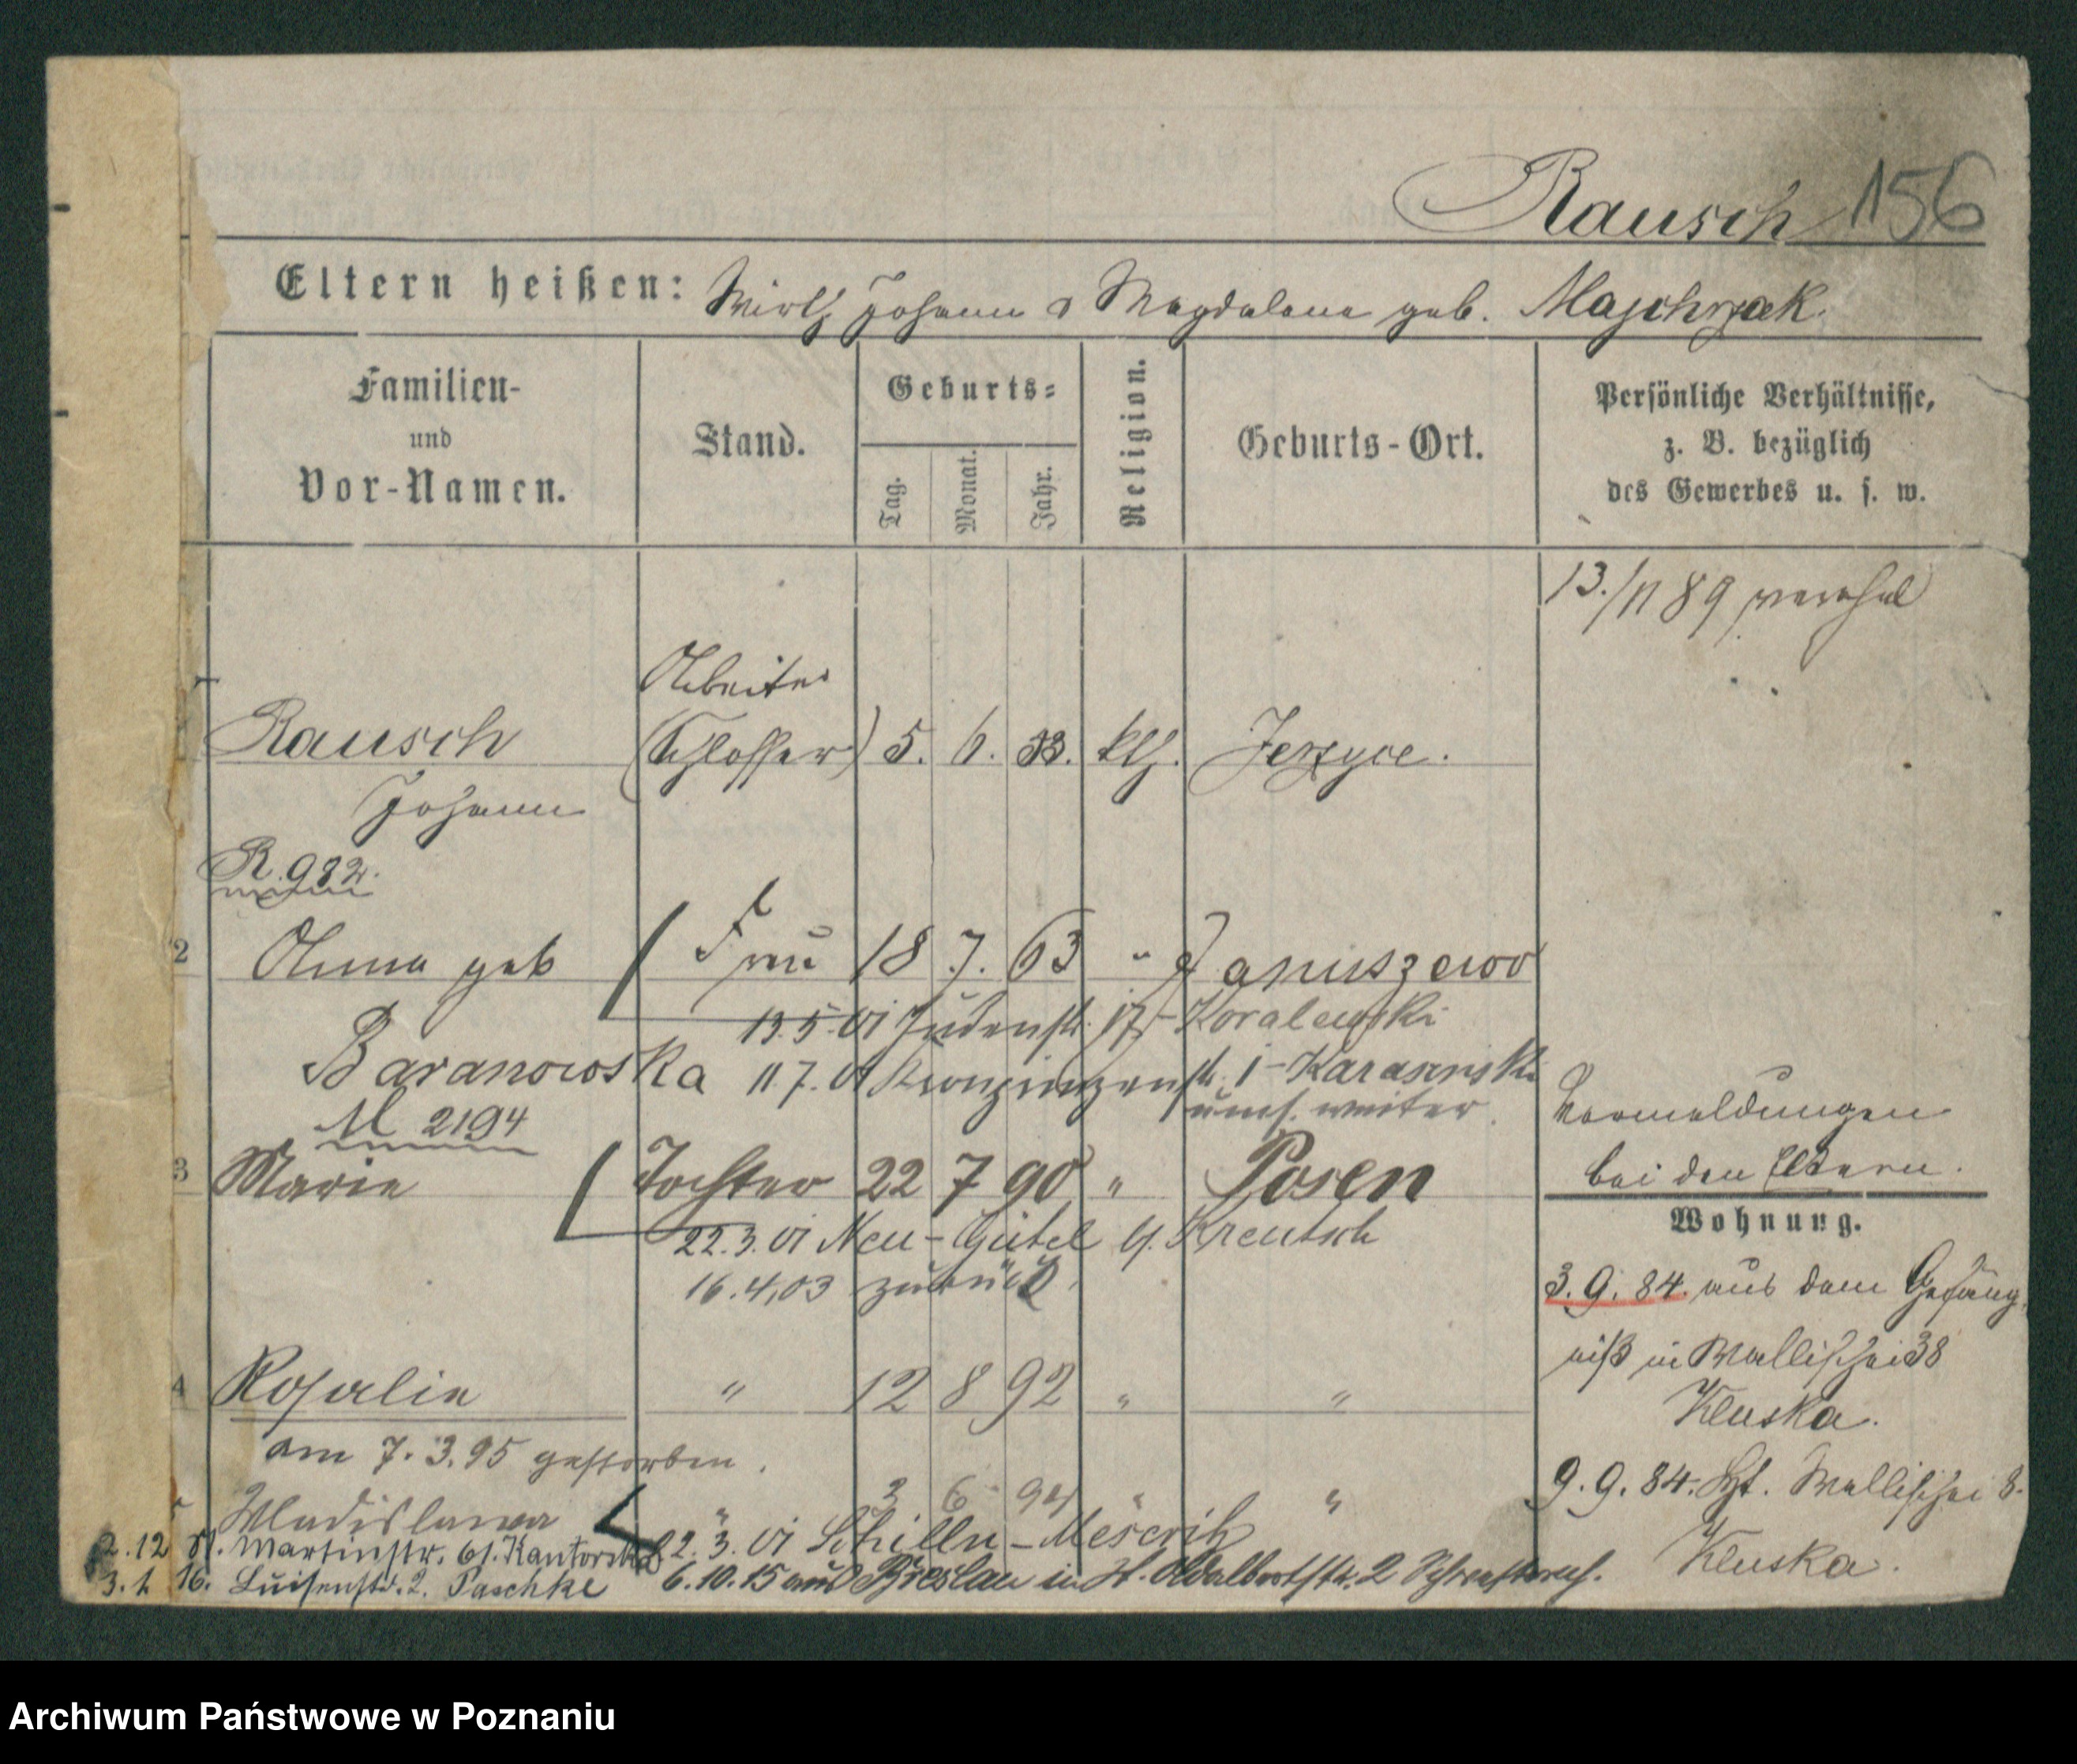 Rausch 156
Eltern heißen: Wirth Johann & Magdalena geb. Majchrzak.
Familien-
und
Vor-Namen.
Stand.
Geburts-
Tag.
Monat.
Jahr.
Religion.
Geburts-Ort.
Persönliche Verhältnisse,
z. B. bezüglich
des Gewerbes u. s. w.
13./11 89
Arbeiter
1 Rausch (Schlosser) 5. 6. 58. kth. Jerzyce.
Johann
R. 982.
2 Anna geb Frau 18 7. 63 " Januszewo
13.5.01 Judenstr. 17 - Koralewski
Baranowska 11.7.01 Kronprinzenstr. 1 - Karasinski
umf. weiter.
M 2194
Vormeldungen
bei den Eltern.
3 Marie Tochter 22 7 90 " Posen
22.3.01 Neu-Gürtel 4. Kreutsch
16.4.03 zurück.
Wohnung.
3.9.84. aus dem Gefäng
niß in Wallischei 38
Kluska.
4 Rosalie " 12 8 92 " "
am 7.3.95 gestorben.
9.9.84. Wallischei 8.
Kluska.
5 Wladislawa " 3 6 94 " "
22.3.01 Schilln-Meseritz
2.12 St. Martinstr. 61. Kantorska
6.10.15 aus Breslau in St. Adalbertstr. 2
3.1 16. Luisenstr. 2. Paschke
Archiwum Państwowe w Poznaniu